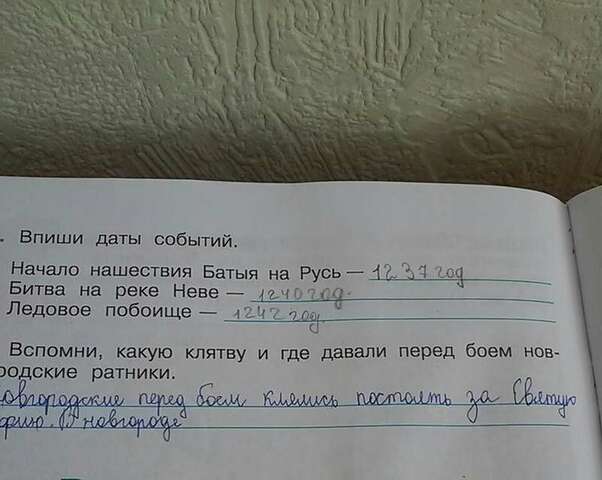 . Впиши даты событий.
Начало нашествия Батыя на Русь — 1237 год
Битва на реке Неве — 1240 год.
Ледовое побоище — 1242 год.
Вспомни, какую клятву и где давали перед боем нов-
родские ратники.
овгородские перед боем клялись постоять за Святую
фию. В новгороде